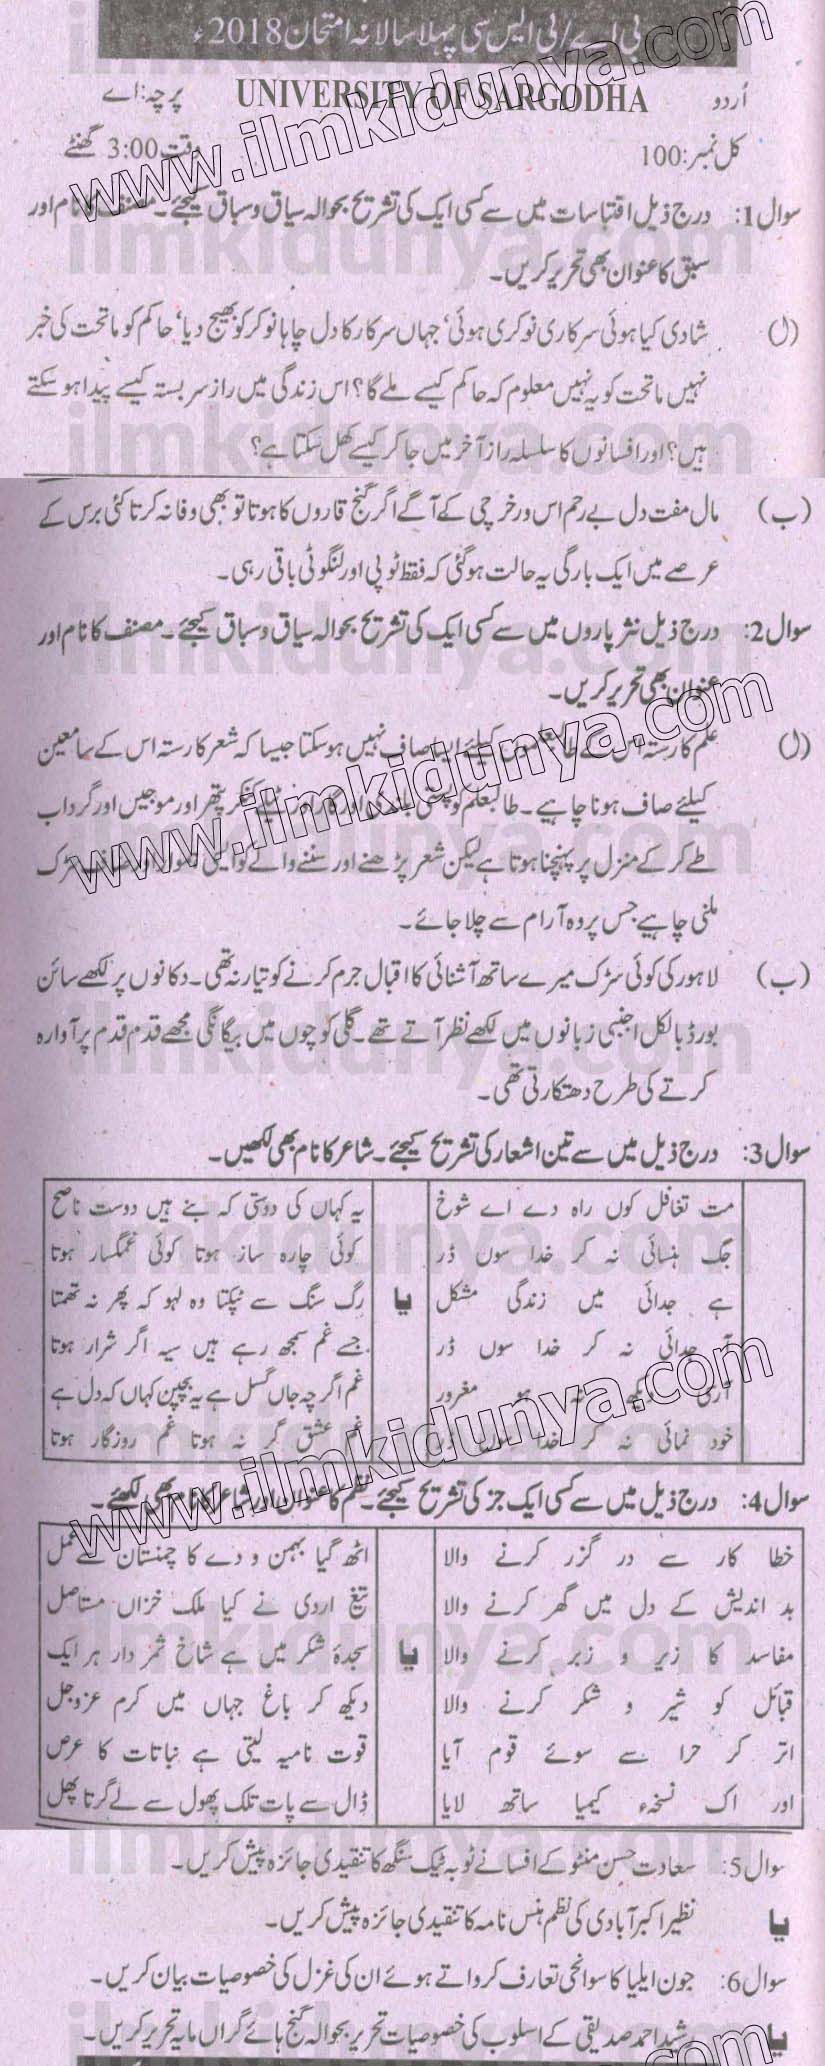 بی اے/بی ایس سی پہلا سالانہ امتحان 2018ء
اُردو UNIVERSITY OF SARGODHA پرچہ: اے
کل نمبر: 100 وقت 3:00 گھنٹے
سوال 1: درج ذیل اقتباسات میں سے کسی ایک کی تشریح بحوالہ سیاق و سباق کیجئے۔ مصنف کا نام اور
سبق کا عنوان بھی تحریر کریں۔
(ل) شادی کیا ہوئی سرکاری نوکری ہوئی' جہاں سرکار کا دل چاہا نوکر کو بھیج دیا' حاکم کو ماتحت کی خبر
نہیں ماتحت کو یہ نہیں معلوم کہ حاکم کیسے ملے گا؟ اس زندگی میں راز سر بستہ کیسے پیدا ہو سکتے
ہیں؟ اور افسانوں کا سلسلہ راز آخر میں جا کر کیسے کھل سکتا ہے؟
(ب) مال مفت دل بے رحم اس ور خرچی کے آگے اگر گنج قاروں کا ہوتا تو بھی وفا نہ کرتا کئی برس کے
عرصے میں ایک بارگی یہ حالت ہو گئی کہ فقط ٹوپی اور لنگوٹی باقی رہی۔
سوال 2: درج ذیل نثر پاروں میں سے کسی ایک کی تشریح بحوالہ سیاق و سباق کیجئے۔ مصنف کا نام اور
عنوان بھی تحریر کریں۔
(ل) علم کا رستہ اس کے طالبعلموں کیلئے ایسا صاف نہیں ہو سکتا جیسا کہ شعر کا رستہ اس کے سامعین
کیلئے صاف ہونا چاہیے۔ طالبعلم کو پستی بلندی اور کنکر پتھر اور موجیں اور گرداب
طے کر کے منزل پر پہنچنا ہوتا ہے لیکن شعر پڑھنے اور سننے والے کو ایسی صاف سڑک
ملنی چاہیے جس پر وہ آرام سے چلا جائے۔
(ب) لاہور کی کوئی سڑک میرے ساتھ آشنائی کا اقبال جرم کرنے کو تیار نہ تھی۔ دکانوں پر لکھے سائن
بورڈ بالکل اجنبی زبانوں میں لکھے نظر آتے تھے۔ گلی کوچوں میں بیگانگی مجھے قدم قدم پر آوارہ
کرتے کی طرح دھتکارتی تھی۔
سوال 3: درج ذیل میں سے تین اشعار کی تشریح کیجئے۔ شاعر کا نام بھی لکھیں۔
مت تغافل کوں راہ دے اے شوخ
جگ ہنسائی نہ کر خدا سوں ڈر
ہے جدائی میں زندگی مشکل
آ جدائی نہ کر خدا سوں ڈر
آرسی دیکھ نہ ہو مغرور
خود نمائی نہ کر خدا سوں ڈر
یا
یہ کہاں کی دوستی کہ بنے ہیں دوست ناصح
کوئی چارہ ساز ہوتا کوئی غمگسار ہوتا
رگ سنگ سے ٹپکتا وہ لہو کہ پھر نہ تھمتا
جسے غم سمجھ رہے ہیں سیہ اگر شرار ہوتا
غم اگرچہ جاں گسل ہے پہ بچیں کہاں کہ دل ہے
غم عشق گر نہ ہوتا غم روزگار ہوتا
سوال 4: درج ذیل میں سے کسی ایک جز کی تشریح کیجئے۔ نظم کا عنوان اور شاعر کا نام بھی لکھئے۔
خطا کار سے در گزر کرنے والا
بد اندیش کے دل میں گھر کرنے والا
مفاسد کا زیر و زبر کرنے والا
قبائل کو شیر و شکر کرنے والا
اتر کر حرا سے سوئے قوم آیا
اور اک نسخہء کیمیا ساتھ لایا
یا
اٹھ گیا بہمن و دے کا چمنستان سے عمل
تیغ اردی نے کیا ملک خزاں مستاصل
سجدۂ شکر میں ہے شاخ ثمر دار ہر ایک
دیکھ کر باغ جہاں میں کرم عزوجل
قوت نامیہ لیتی ہے نباتات کا عرض
ڈال سے پات تلک پھول سے لے گرتا پھل
سوال 5: سعادت حسن منٹو کے افسانے ٹوبہ ٹیک سنگھ کا تنقیدی جائزہ پیش کریں۔
یا نظیر اکبر آبادی کی نظم ہنس نامہ کا تنقیدی جائزہ پیش کریں۔
سوال 6: جون ایلیا کا سوانحی تعارف کرواتے ہوئے ان کی غزل کی خصوصیات بیان کریں۔
یا رشید احمد صدیقی کے اسلوب کی خصوصیات تحریر بحوالہ گنج ہائے گراں مایہ تحریر کریں۔
www.ilmkidunya.com